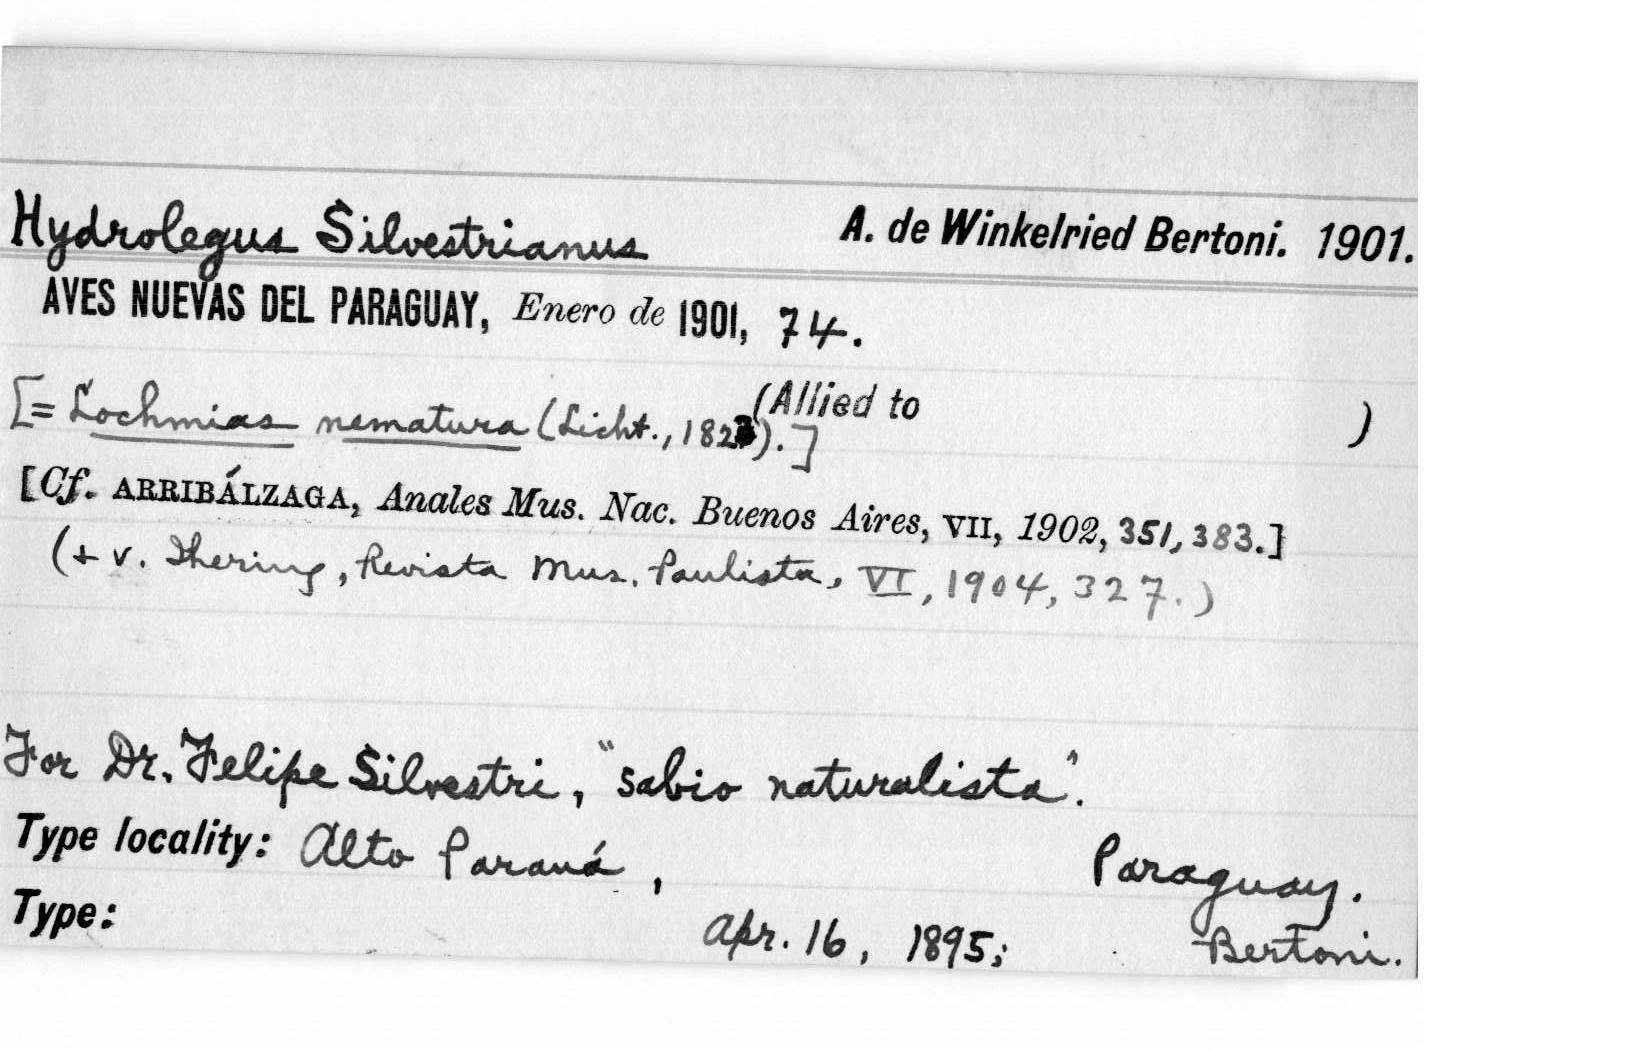 Hydrolegus Silvestrianus A. de Winkelried Bertoni. 1901.
AVES NUEVAS DEL PARAGUAY, Enero de 1901, 74.
(Allied to )
[= Lochmias nematura (Licht., 1823).]
[Cf. ARRIBÁLZAGA, Anales Mus. Nac. Buenos Aires, VII, 1902, 351, 383.]
(+ v. Ihering, Revista Mus. Paulista, VI, 1904, 327.)
For Dr. Felipe Silvestri, "sabio naturalista".
Type locality: Alto Paraná, Paraguay.
Type: Apr. 16, 1895; Bertoni.